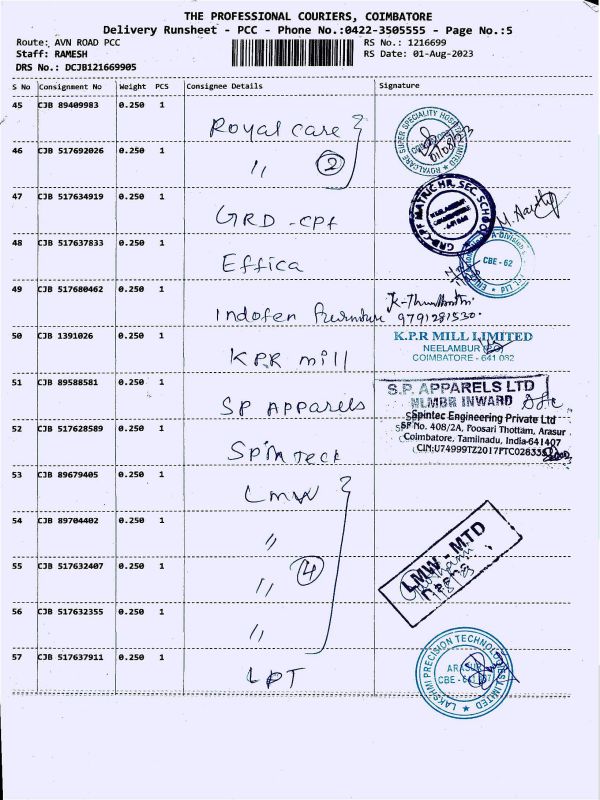 THE PROFESSIONAL COURIERS, COIMBATORE
Delivery Runsheet - PCC - Phone No.:0422-3505555 - Page No.:5
Route: AVN ROAD PCC
RS No.: 1216699
Staff: RAMESH
RS Date: 01-Aug-2023
DRS No.: DCJB121669905
S No Consignment No Weight PCS Consignee Details Signature
45 CJB 89409983 0.250 1 Royal care
46 CJB 517692026 0.250 1 " 2
01/08/23
47 CJB 517634919 0.250 1 GRD - CPF
48 CJB 517637833 0.250 1 Effica
CBE - 62
49 CJB 517680462 0.250 1 Indofen Furniture
9791281530.
50 CJB 1391026 0.250 1 KPR mill
K.P.R MILL LIMITED
NEELAMBUR (PO)
COIMBATORE - 641 062
51 CJB 89588581 0.250 1 SP Apparels
S.P. APPARELS LTD
INWARD
52 CJB 517628589 0.250 1 Spintech
Spintec Engineering Private Ltd
SF No. 408/2A, Poosari Thottam, Arasur
Coimbatore, Tamilnadu, India-641407
53 CJB 89679405 0.250 1 LMW
54 CJB 89704402 0.250 1 "
55 CJB 517632407 0.250 1 " 4
LMW - MTD
56 CJB 517632355 0.250 1 "
57 CJB 517637911 0.250 1 LPT
LAKSHMI PRECISION TECHNOLOGIES LIMITED
ARASUR